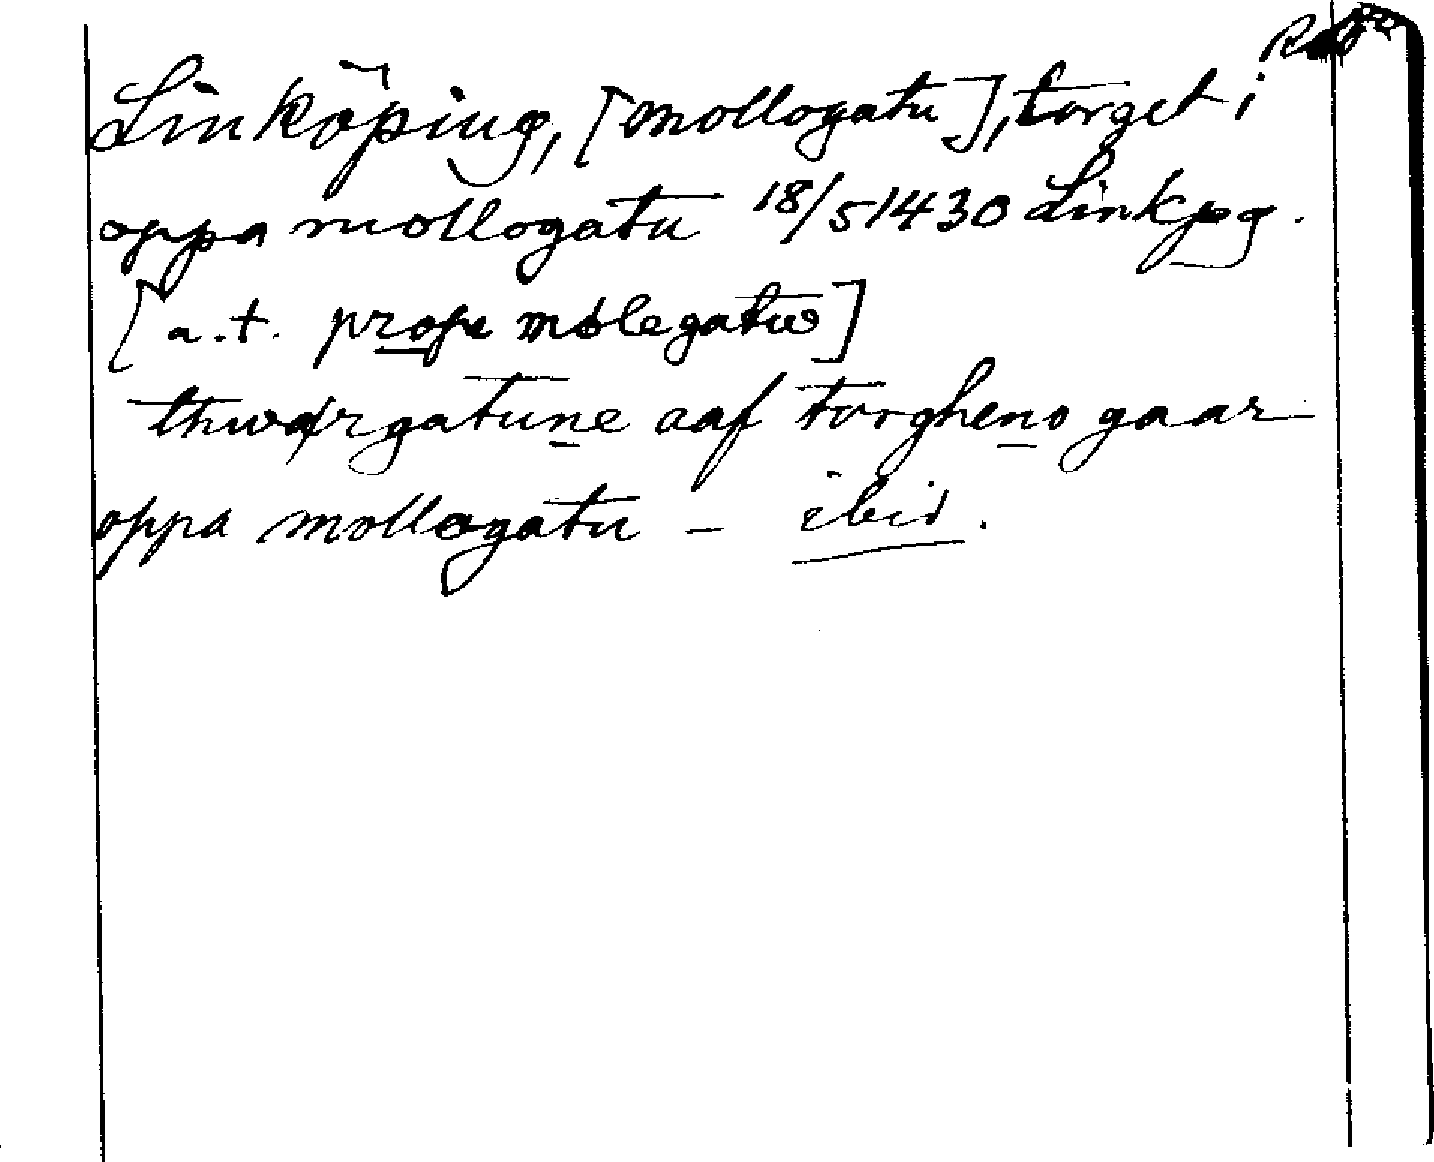 Linköping, [mollogatu], torget i
oppa mollogatu 18/5 1430 Linkpg.
[a.t. prope molegatu]
thwærgatune aaf torgheno gaar
oppa mollogatu – ibid.